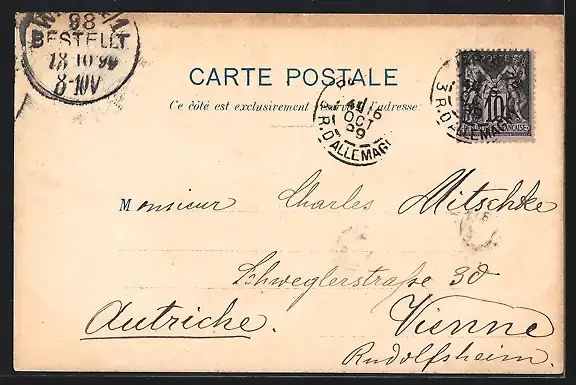 98
BESTELLT
18 10 99
8-10V
CARTE POSTALE
Ce côté est exclusivement réservé à l'adresse
16
OCT
R.D'ALLEMAG
10
3 R.D'ALLEMAG
Monsieur Charles Mitschke
Schweglerstraße 38
Autriche. Vienne
Rudolfsheim.